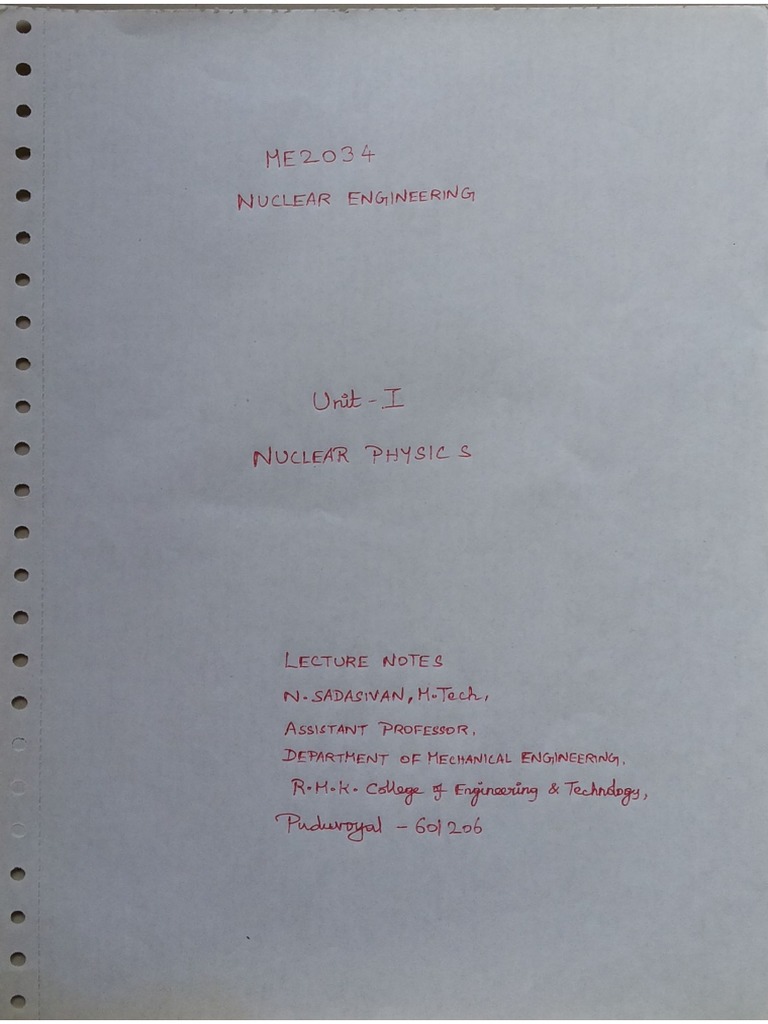 ME2034
NUCLEAR ENGINEERING
Unit - I
NUCLEAR PHYSICS
LECTURE NOTES
N. SADASIVAN, M.Tech,
ASSISTANT PROFESSOR,
DEPARTMENT OF MECHANICAL ENGINEERING,
R.M.K. College of Engineering & Technology,
Puduvoyal - 601206